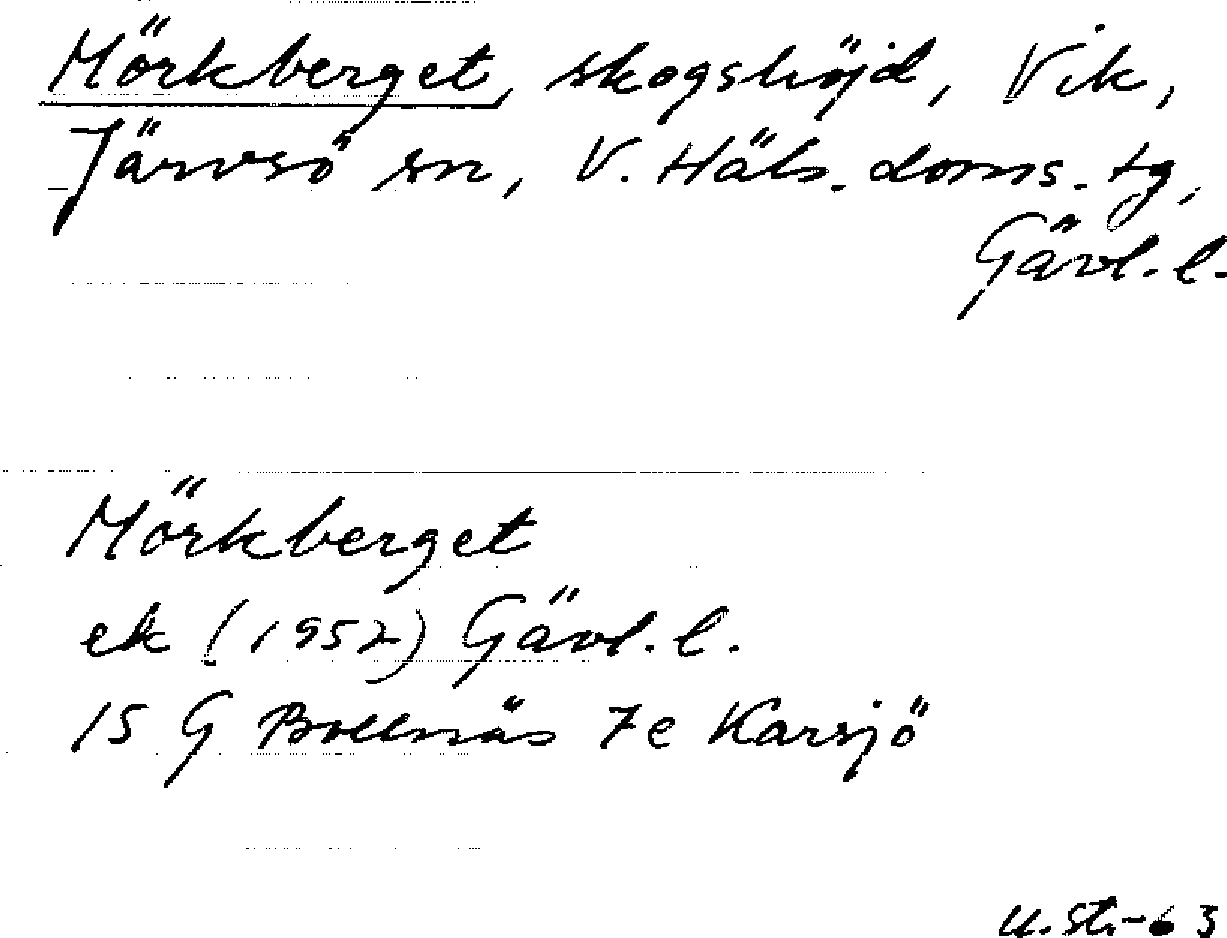 Mörkberget, skogshöjd, Vik,
Järvsö sn, V. Häls. doms. tg,
Gävl. l.
Mörkberget
ek (1952) Gävl. l.
15 G Bollnäs 7e Karsjö
U. St. -63